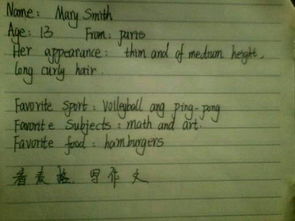 Name: Mary Smith
Age: 13 From: paris
Her appearance: thin and of medium height,
long curly hair.
Favorite sport: volleyball ang ping-pong
Favorite Subjects: math and art.
Favorite food: hamburgers
看表格 写作文